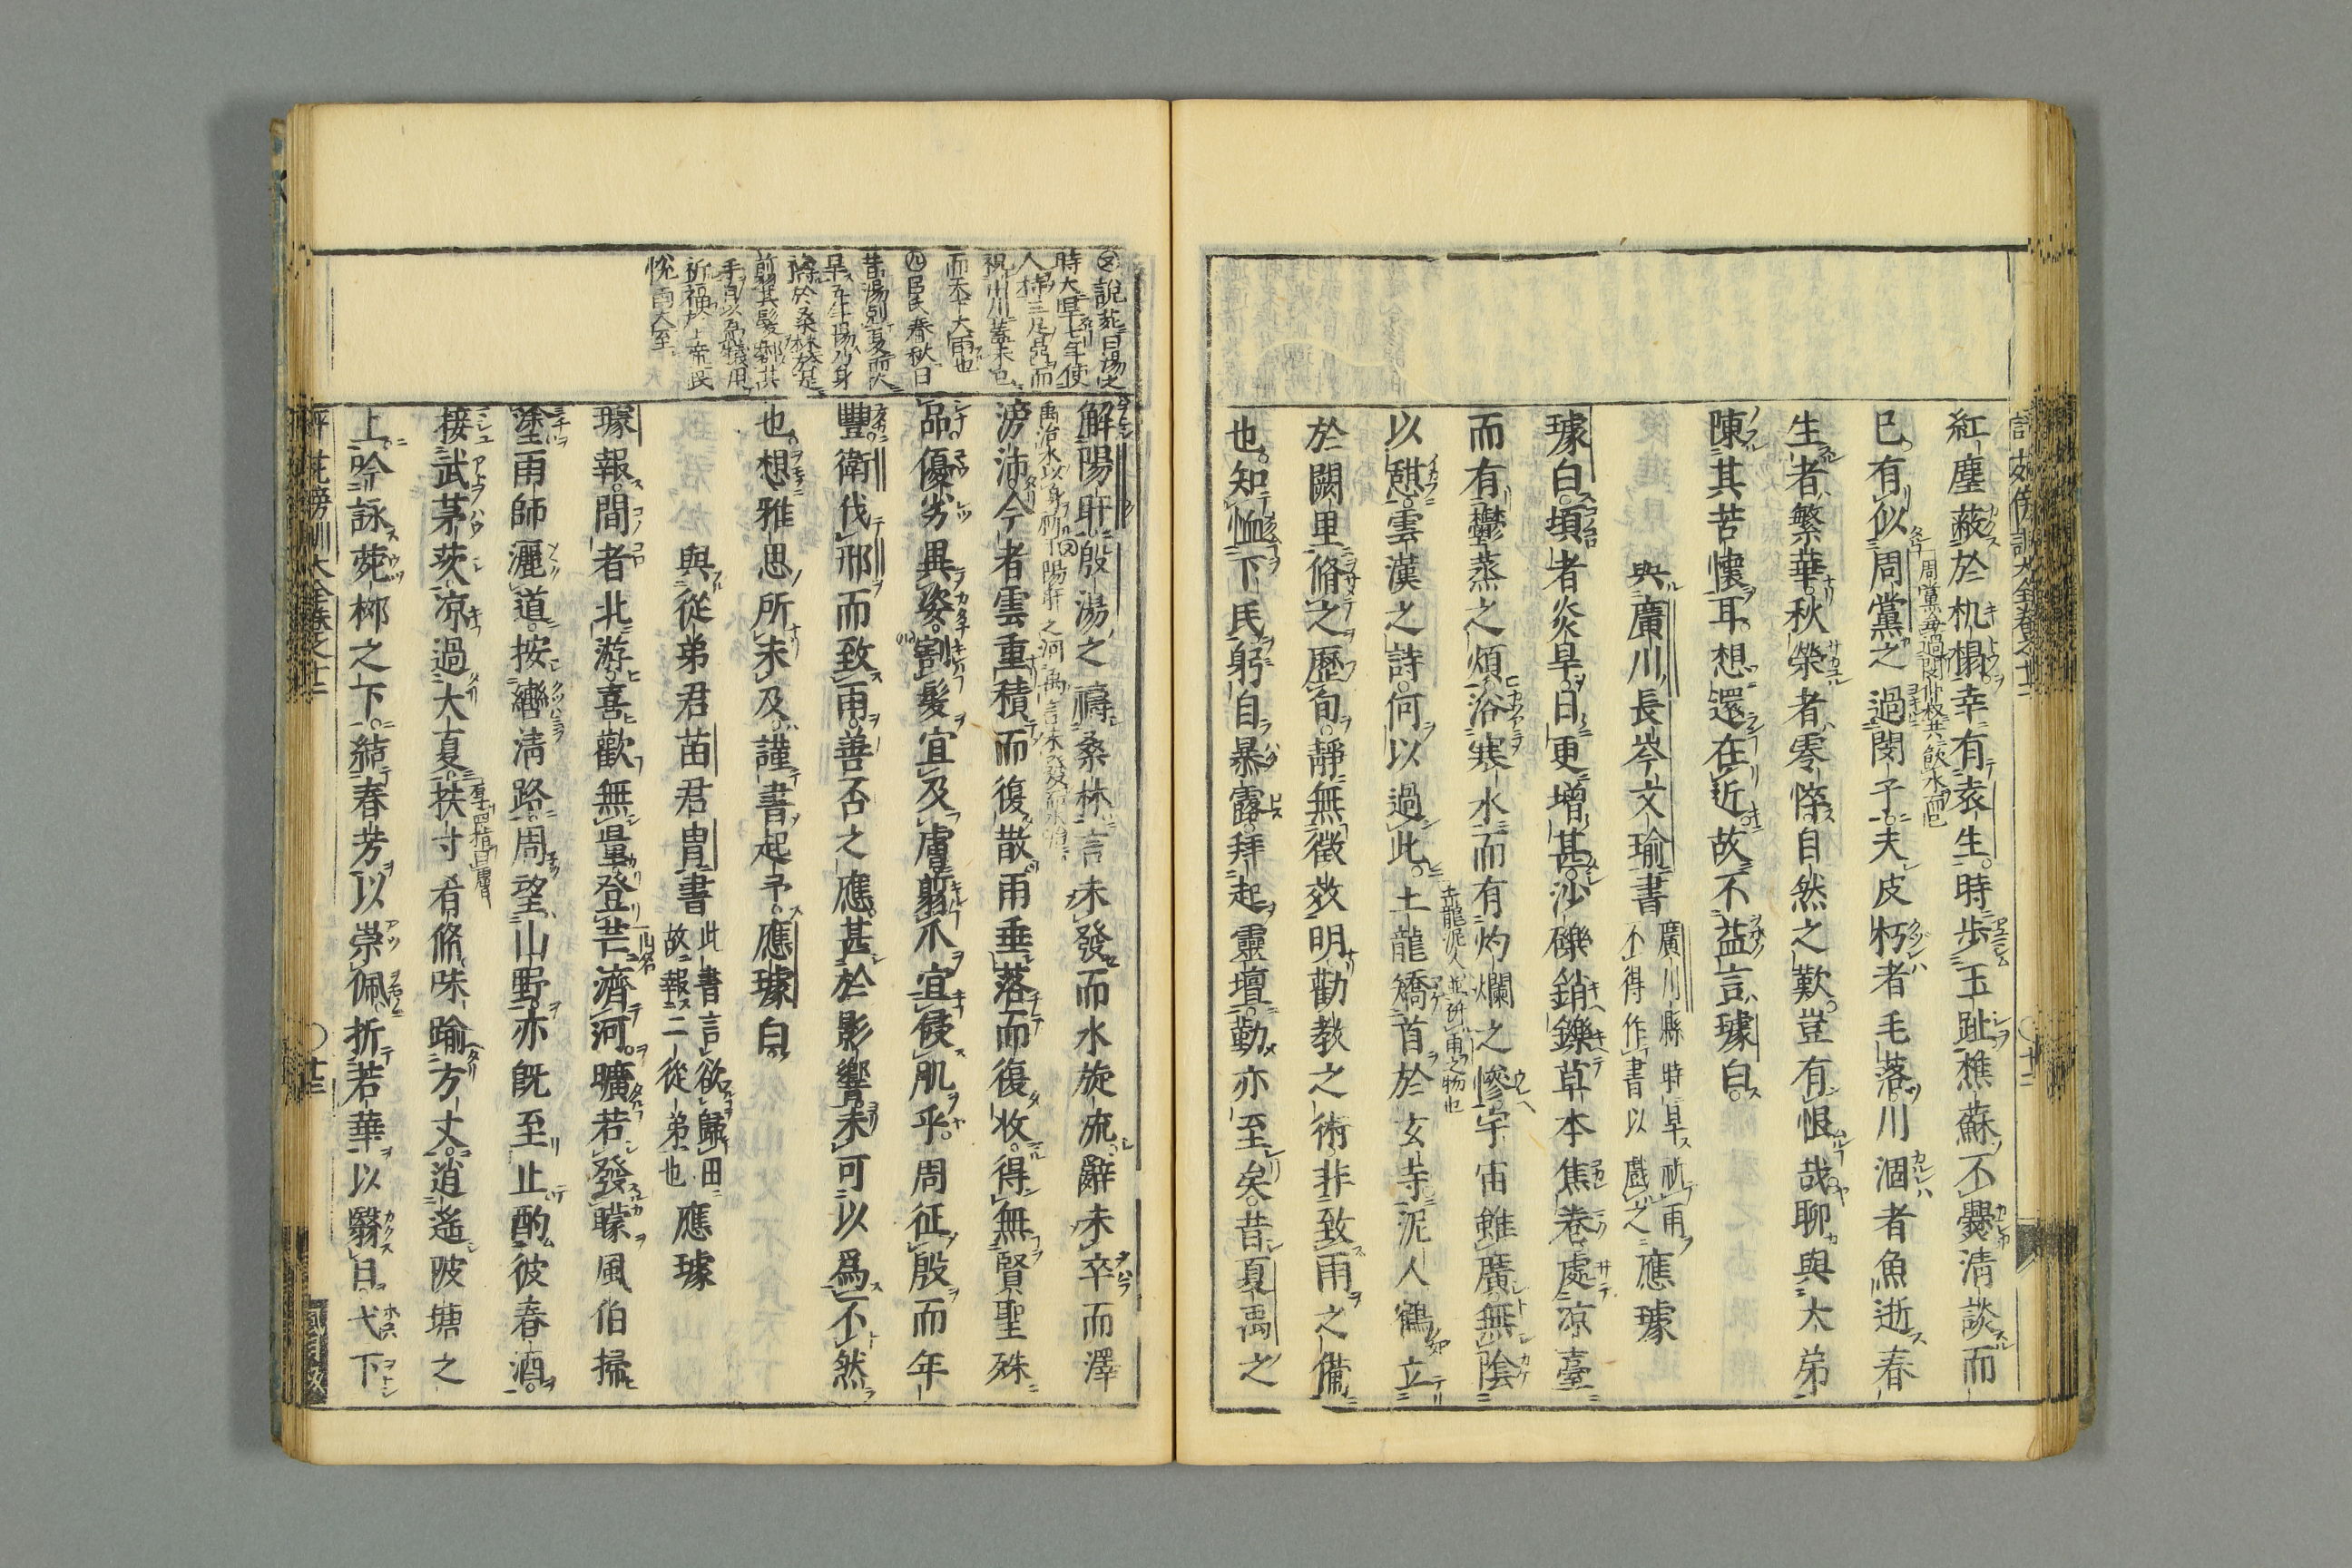 紅塵蔽於机榻幸有袁生時歩玉趾樵蘇不爨淸談而
已有似周黨之過閔子夫皮朽者毛落川涸者魚逝春
周黨每過閔仲叔共飲水而已
生者繁華秋榮者零悴自然之歎豈有恨哉聊與大弟
陳其苦懷耳想還在近故不益言璩白
與廣川長岑文瑜書
廣川縣時旱祈雨
不得作書以戲之
應璩
璩白頃者炎旱日更增甚沙礫銷鑠草本焦卷處凉臺
而有鬱蒸之煩浴寒水而有灼爛之慘宇宙雖廣無陰
以憩雲漢之詩何以過此土龍矯首於玄寺泥人鶴立
土龍泥人並祈雨之物也
於闕里脩之歷旬靜無徵效明勸教之術非致雨之備
也知恤下民躬自暴露拜起靈壇勤亦至矣昔夏禹之
說苑曰湯之
時大旱七年使
人持三足鼎而
祝山川蓋未已
而天大雨也
呂氏春秋曰
昔湯剋夏而大
旱五年湯乃身
禱於桑林於是
剪其髮鄜其
手自以爲犧用
祈福於上帝民
悅雨大至
解陽旰殷湯之禱桑林言未發而水旋流辭未卒而澤
禹治水以身祈于陽旰之河禹言未發而水治
滂沛今者雲重積而復散雨垂落而復收得無賢聖殊
品優劣異姿割髮宜及膚翦爪宜侵肌乎周征殷而年
豐衛伐邢而致雨善否之應甚於影響未可以爲不然
也想雅思所未及謹書起予應璩白
與從弟君苗君胄書
此書言欲歸田
故報二從弟也
應璩
璩報間者北游喜歡無量登芒濟河曠若發矇風伯掃
山名
塗雨師灑道按轡淸路周望山野亦旣至止酌彼春酒
接武茅茨凉過大夏扶寸肴脩味踰方丈逍遙陂塘之
四指曰膚
上吟詠菀柳之下結春芳以崇佩折若華以翳日弋下